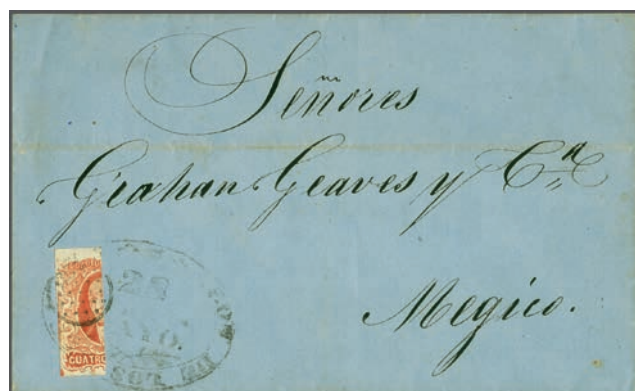 Señores
Grahan Geaves y Cª
Megico.
28
CUATRO